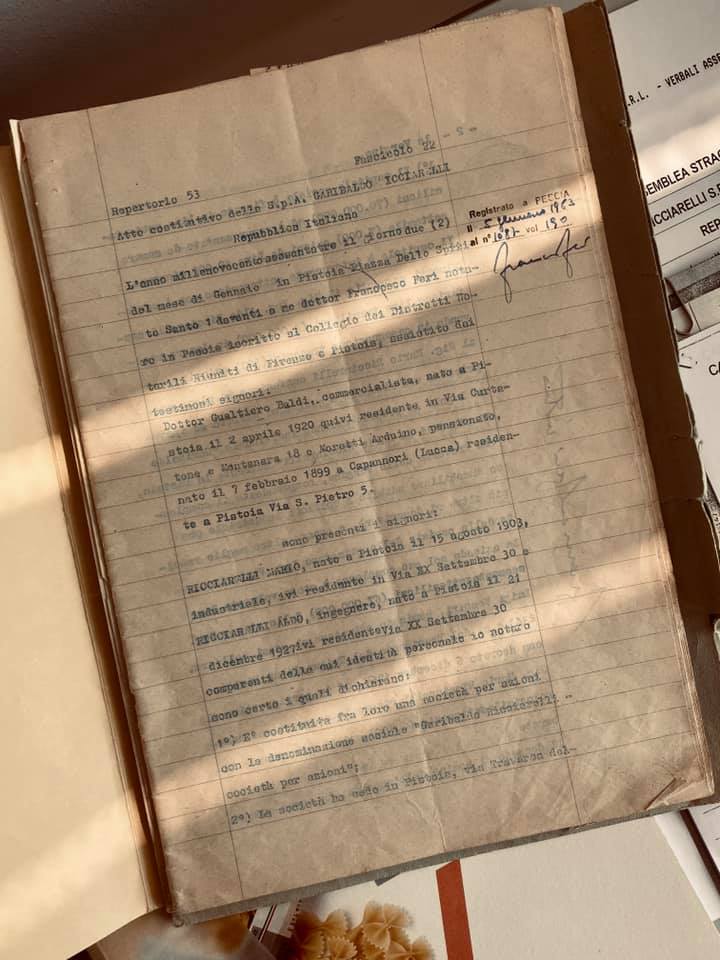 Fascicolo 22
Repertorio 53
Atto costitutivo della S.p.A. GARIBALDO ICCIARELLI
Repubblica Italiana
L'anno millenovecentosessantatre il giorno due (2)
del mese di Gennaio in Pistoia Piazza Dello Spiri
to Santo 1 davanti a me dottor Francesco Feri nota-
ro in Pescia iscritto al Collegio dei Distretti No-
tarili Riuniti di Firenze e Pistoia, assistito dai
testimoni signori:
Dottor Gualtiero Baldi, commercialista, nato a Pi-
stoia il 2 aprile 1920 quivi residente in Via Curta-
tone e Montanara 18 e Moretti Arduino, pensionato,
nato il 7 febbraio 1899 a Capannori (Lucca) residen-
te a Pistoia Via S. Pietro 5-
sono presenti i signori:
RICCIARELLI MARIO, nato a Pistoia il 15 agosto 1903,
industriale, ivi residente in Via XX Settembre 30 e
RICCIARELLI ALDO, ingegnere, nato a Pistoia il 21
dicembre 1927ivi residenteVia XX Settembre 30
comparenti della cui identità personale io notaro
sono certo i quali dichiarano:
1°) E' costituita fra loro una società per azioni
con la denominazione sociale "Garibaldo Ricciarelli -
società per azioni";
2°) La società ha sede in Pistoia, via Traversa del-
Registrato a PESCIA
Il 5 gennaio 1963
al n° 1087 vol 190
.R.L. - VERBALI ASSE
SEMBLEA STRAO
ICCIARELLI S.
REP